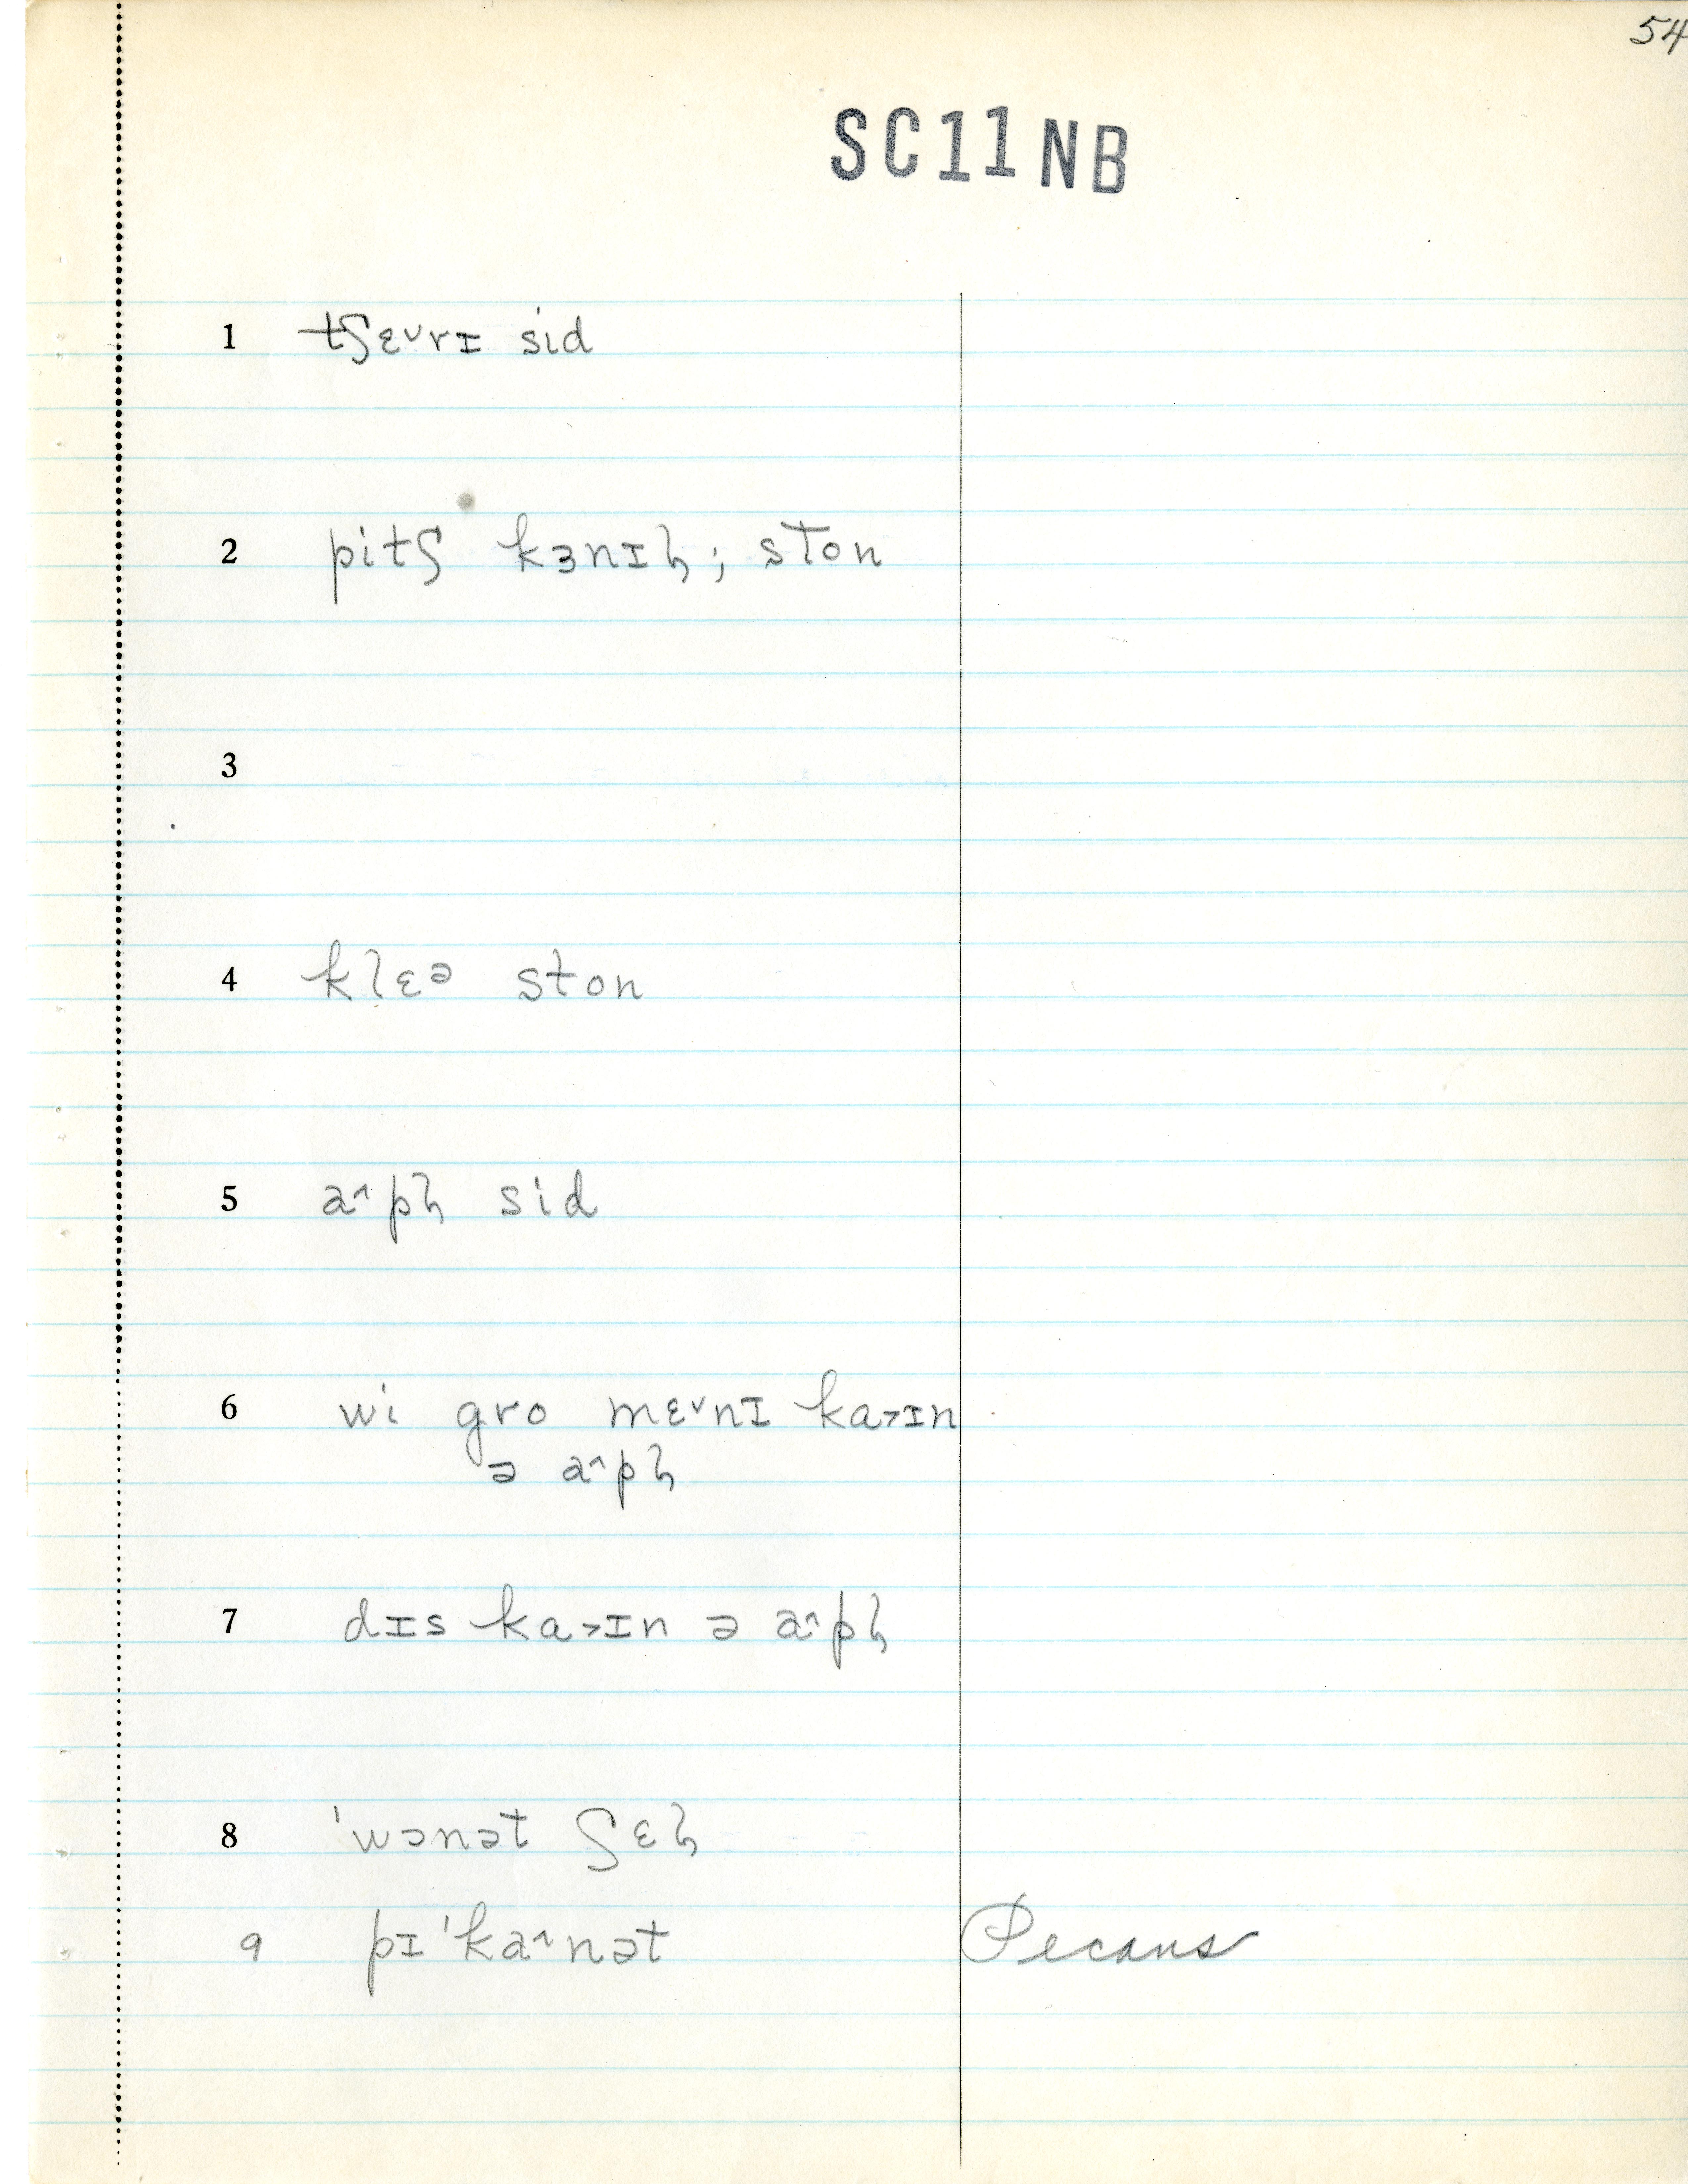 54
SC11NB
1 tʃɛ˅rɪ sid
2 pitʃ kɜnɪl̩; ston
3
4 klɛə ston
5 a˄pl̩ sid
6 wi gro mɛ˅nɪ ka˃ɪn
ə a˄pl̩
7 dɪs ka˃ɪn ə a˄pl̩
8 ˈwɔnət ʃɛl̩
9 pɪˈka˄nət Pecans